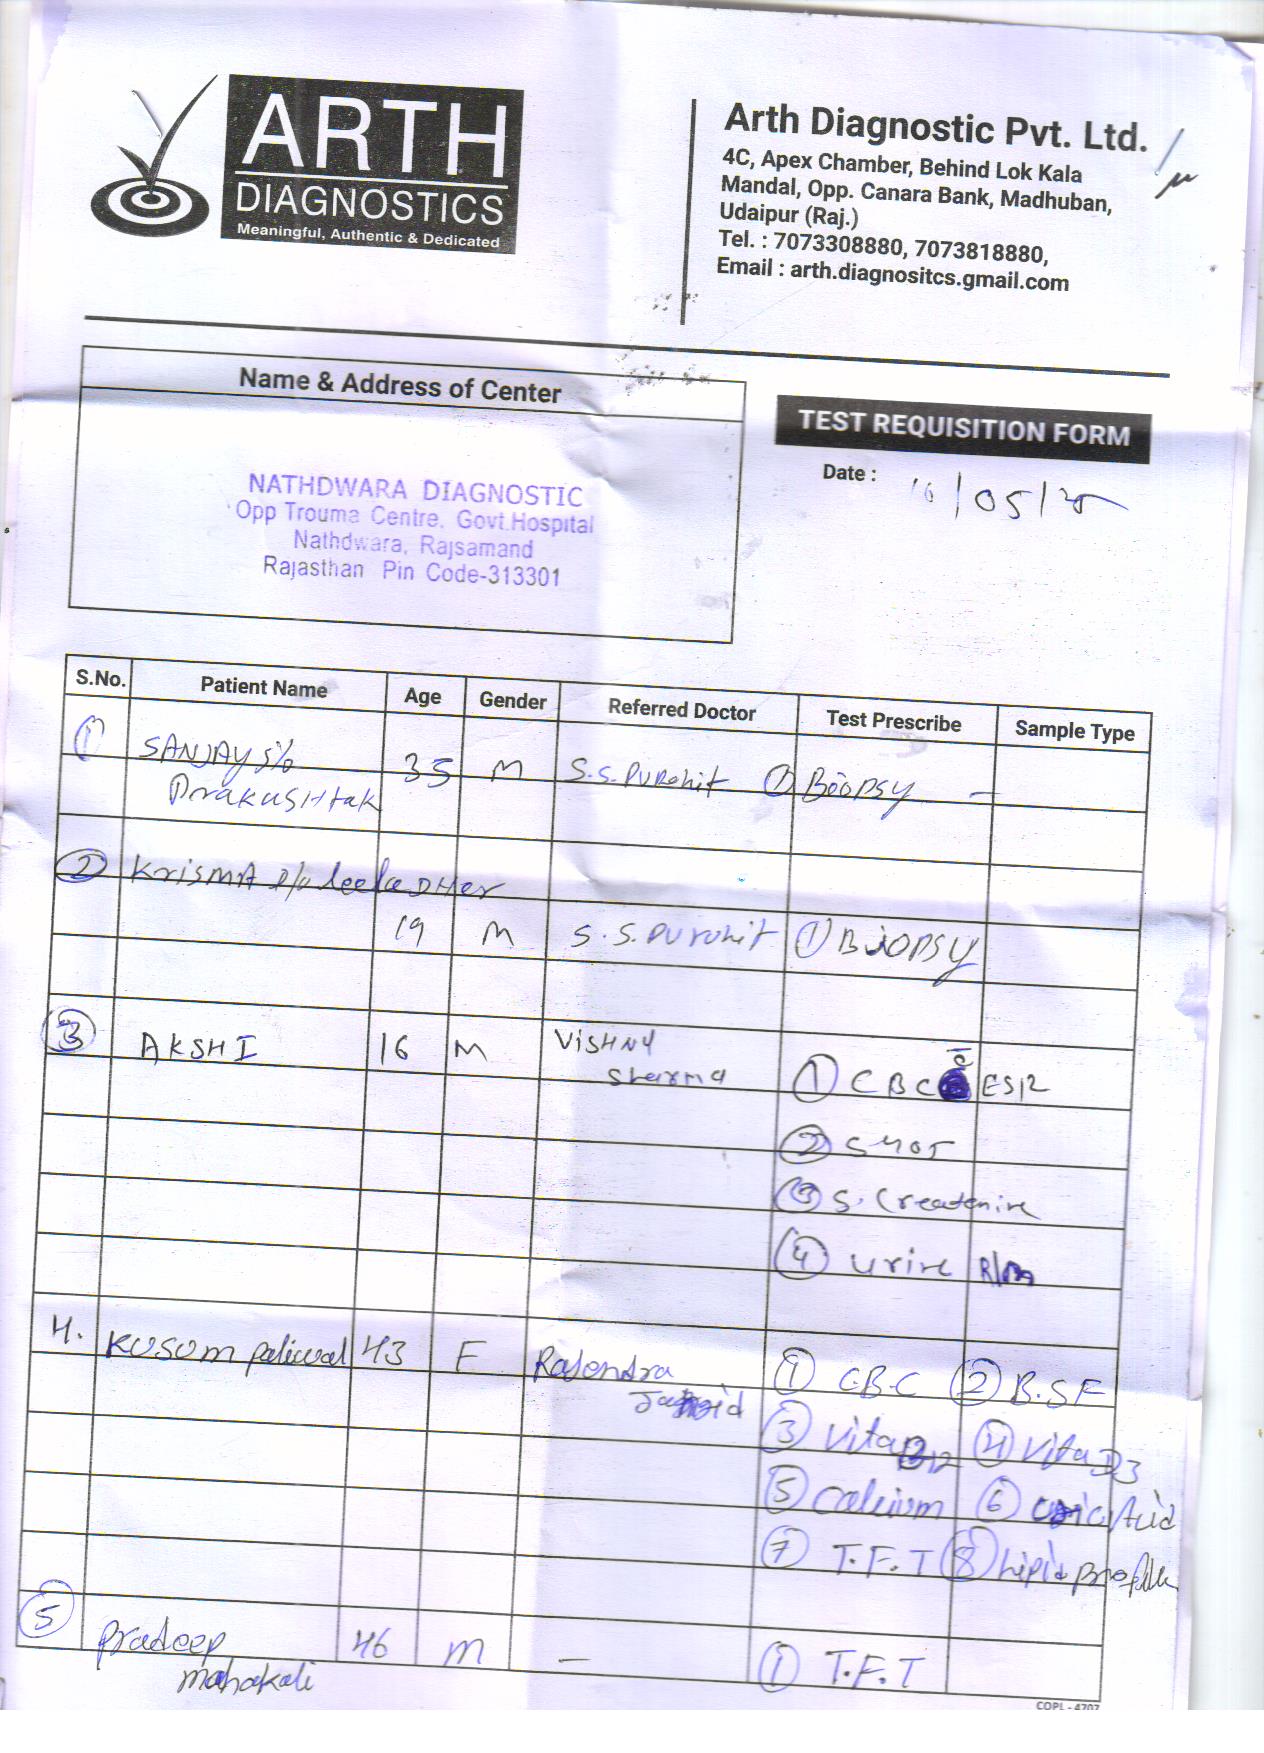 ARTH
DIAGNOSTICS
Meaningful, Authentic & Dedicated
Arth Diagnostic Pvt. Ltd.
4C, Apex Chamber, Behind Lok Kala
Mandal, Opp. Canara Bank, Madhuban,
Udaipur (Raj.)
Tel. : 7073308880, 7073818880,
Email : arth.diagnositcs.gmail.com
Name & Address of Center
NATHDWARA DIAGNOSTIC
Opp Trouma Centre. Govt.Hospital
Nathdwara, Rajsamand
Rajasthan Pin Code-313301
TEST REQUISITION FORM
Date : 16/05/25
S.No. Patient Name Age Gender Referred Doctor Test Prescribe Sample Type
1 SANJAY S/o 35 M S.S. PUROHIT ① BIOPSY —
② KrisMA D/o leelaDHer
19 M S.S. PUROHIT ① BIOPSY
③ AKSHI 16 M VISHNU
Sharma ① CBC c̄ ESR
② SGOT
③ S. Createnine
④ urine R/M
4. KUSUM paliwal 43 F Rajendra ① C.B.C ② B.S.F
③ Vita B12 ④ Vita D3
⑤ Calcium ⑥ uric Acid
⑦ T.F.T ⑧ Lipid profile
⑤ pradeep 46 M — ① T.F.T
mahakali
COPL - 4707